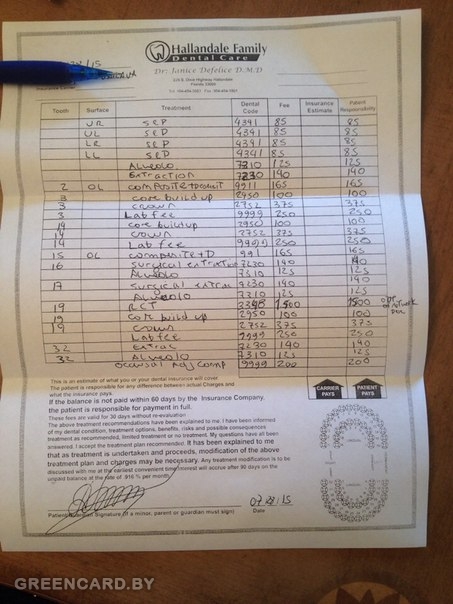 Hallandale Family
Dental Care
Dr. Janice Defelice D.M.D
/15
Tooth Surface Treatment Dental Code Fee Insurance Estimate Patient Responsibility
UR SRP 4341 85 85
UL SRP 4341 85 85
LR SRP 4341 85 85
LL SRP 4341 85 85
Alveolo 7310 125 125
Extraction 7230 140 140
2 OL 165 165
3 core build up 2950 100 100
3 crown 2752 375 375
3 Lab fee 9999 250 250
14 core build up 2950 100 100
14 crown 2752 375 375
14 Lab fee 9999 250 250
15 OL composite+D 991 165 165
16 Surgical extraction 7230 140 140
Alveolo 7310 125 125
17 Surgical extrac 7230 140 140
Alveolo 7310 125 125
19 RCT 1500 1500
19 core build up 2950 100 100
19 crown 2752 375 375
Lab fee 9999 250 250
32 Extrac 7230 140 140
32 Alveolo 7310 125 125
Occusal Adj Comp 9999 200 200
This is an estimate of what you or your dental insurance will cover.
The patient is responsible for any difference between actual Charges and
what the insurance pays.
If the balance is not paid within 60 days by the Insurance Company,
the patient is responsible for payment in full.
These fees are valid for 30 days without re-evaluation.
The above treatment recommendations have been explained to me. I have been informed
of my dental condition, treatment options, benefits, risks and possible consequences
treatment as recommended, limited treatment or no treatment. My questions have all been
answered. I accept the treatment plan recommended. It has been explained to me
that as treatment is undertaken and proceeds, modification of the above
treatment plan and charges may be necessary. Any treatment modification to be
discussed with me at the earliest convenient time. Interest will accrue after 90 days on the
unpaid balance at the rate of .916 % per month.
CARRIER PAYS PATIENT PAYS
07.28.15
Patient/Guardian Signature (if a minor, parent or guardian must sign) Date
GREENCARD.BY